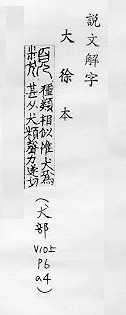 説文解字
大徐本
種類相似惟犬為
甚从犬頪聲力遂切
(犬部 V10上 P6 a4)